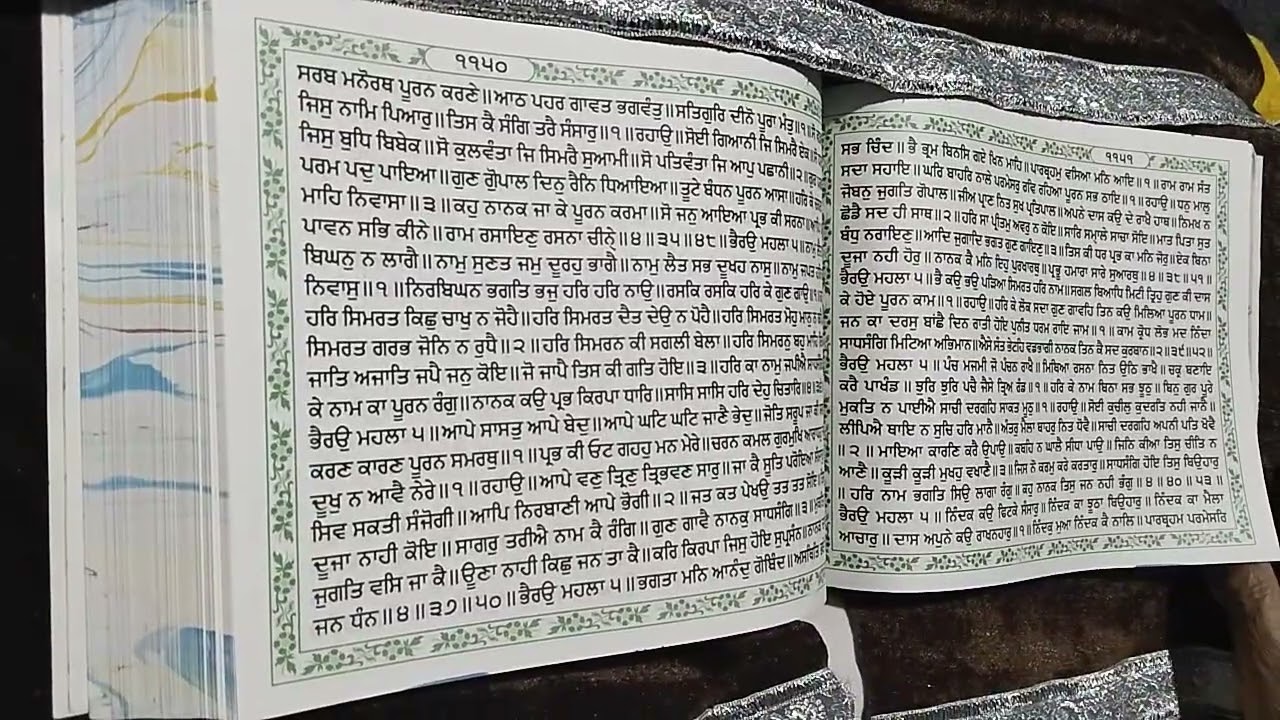 ੧੧੫੦
ਸਰਬ ਮਨੋਰਥ ਪੂਰਨ ਕਰਣੇ॥ਆਠ ਪਹਰ ਗਾਵਤ ਭਗਵੰਤੁ॥ਸਤਿਗੁਰਿ ਦੀਨੋ ਪੂਰਾ ਮੰਤੁ॥੧॥
ਜਿਸੁ ਨਾਮਿ ਪਿਆਰੁ॥ਤਿਸ ਕੈ ਸੰਗਿ ਤਰੈ ਸੰਸਾਰੁ॥੧॥ਰਹਾਉ॥ਸੋਈ ਗਿਆਨੀ ਜਿ ਸਿਮਰੈ ਏਕ॥
ਜਿਸੁ ਬੁਧਿ ਬਿਬੇਕ॥ਸੋ ਕੁਲਵੰਤਾ ਜਿ ਸਿਮਰੈ ਸੁਆਮੀ॥ਸੋ ਪਤਿਵੰਤਾ ਜਿ ਆਪੁ ਪਛਾਨੀ॥੨॥
ਪਰਮ ਪਦੁ ਪਾਇਆ॥ਗੁਣ ਗੋੁਪਾਲ ਦਿਨੁ ਰੈਨਿ ਧਿਆਇਆ॥ਤੂਟੇ ਬੰਧਨ ਪੂਰਨ ਆਸਾ॥ਹਰਿ ਕੇ
ਮਾਹਿ ਨਿਵਾਸਾ॥੩॥ਕਹੁ ਨਾਨਕ ਜਾ ਕੇ ਪੂਰਨ ਕਰਮਾ॥ਸੋ ਜਨੁ ਆਇਆ ਪ੍ਰਭ ਕੀ ਸਰਨਾ॥
ਪਾਵਨ ਸਭਿ ਕੀਨੇ॥ਰਾਮ ਰਸਾਇਣੁ ਰਸਨਾ ਚੀਨੇ॥੪॥੩੫॥੪੮॥ਭੈਰਉ ਮਹਲਾ ੫॥
ਬਿਘਨੁ ਨ ਲਾਗੈ॥ਨਾਮੁ ਸੁਣਤ ਜਮੁ ਦੂਰਹੁ ਭਾਗੈ॥ਨਾਮੁ ਲੈਤ ਸਭ ਦੂਖਹ ਨਾਸੁ॥ਨਾਮੁ ਜਪਤ
ਨਿਵਾਸੁ॥੧॥ਨਿਰਬਿਘਨ ਭਗਤਿ ਭਜੁ ਹਰਿ ਹਰਿ ਨਾਉ॥ਰਸਕਿ ਰਸਕਿ ਹਰਿ ਕੇ ਗੁਣ ਗਾਉ॥
ਹਰਿ ਸਿਮਰਤ ਕਿਛੁ ਚਾਖੁ ਨ ਜੋਹੈ॥ਹਰਿ ਸਿਮਰਤ ਦੈਤ ਦੇਉ ਨ ਪੋਹੈ॥ਹਰਿ ਸਿਮਰਤ ਮੋਹੁ ਮਾਨੁ
ਸਿਮਰਤ ਗਰਭ ਜੋਨਿ ਨ ਰੁਧੈ॥੨॥ਹਰਿ ਸਿਮਰਨ ਕੀ ਸਗਲੀ ਬੇਲਾ॥ਹਰਿ ਸਿਮਰਨੁ ਬਹੁ ਮਾਹਿ
ਜਾਤਿ ਅਜਾਤਿ ਜਪੈ ਜਨੁ ਕੋਇ॥ਜੋ ਜਾਪੈ ਤਿਸ ਕੀ ਗਤਿ ਹੋਇ॥੩॥ਹਰਿ ਕਾ ਨਾਮੁ ਜਪੀਐ
ਕੇ ਨਾਮ ਕਾ ਪੂਰਨ ਰੰਗੁ॥ਨਾਨਕ ਕਉ ਪ੍ਰਭ ਕਿਰਪਾ ਧਾਰਿ॥ਸਾਸਿ ਸਾਸਿ ਹਰਿ ਦੇਹੁ ਚਿਤਾਰਿ॥੪॥
ਭੈਰਉ ਮਹਲਾ ੫॥ਆਪੇ ਸਾਸਤੁ ਆਪੇ ਬੇਦੁ॥ਆਪੇ ਘਟਿ ਘਟਿ ਜਾਣੈ ਭੇਦੁ॥ਜੋਤਿ ਸਰੂਪ ਜਾ ਕੀ
ਕਰਣ ਕਾਰਣ ਪੂਰਨ ਸਮਰਥੁ॥੧॥ਪ੍ਰਭ ਕੀ ਓਟ ਗਹਹੁ ਮਨ ਮੇਰੇ॥ਚਰਨ ਕਮਲ ਗੁਰਮੁਖਿ
ਦੂਖੁ ਨ ਆਵੈ ਨੇਰੇ॥੧॥ਰਹਾਉ॥ਆਪੇ ਵਣੁ ਤ੍ਰਿਣੁ ਤ੍ਰਿਭਵਣ ਸਾਰੁ॥ਜਾ ਕੈ ਸੂਤਿ ਪਰੋਇਆ
ਸਿਵ ਸਕਤੀ ਸੰਜੋਗੀ॥ਆਪਿ ਨਿਰਬਾਣੀ ਆਪੇ ਭੋਗੀ॥੨॥ਜਤ ਕਤ ਪੇਖਉ ਤਤ ਤਤ ਸੋਇ॥
ਦੂਜਾ ਨਾਹੀ ਕੋਇ॥ਸਾਗਰੁ ਤਰੀਐ ਨਾਮ ਕੈ ਰੰਗਿ॥ਗੁਣ ਗਾਵੈ ਨਾਨਕੁ ਸਾਧਸੰਗਿ॥੩॥
ਜੁਗਤਿ ਵਸਿ ਜਾ ਕੈ॥ਊਣਾ ਨਾਹੀ ਕਿਛੁ ਜਨ ਤਾ ਕੈ॥ਕਰਿ ਕਿਰਪਾ ਜਿਸੁ ਹੋਇ ਸੁਪ੍ਰਸੰਨ॥
ਜਨ ਧੰਨ॥੪॥੩੭॥੫੦॥ਭੈਰਉ ਮਹਲਾ ੫॥ਭਗਤਾ ਮਨਿ ਆਨੰਦੁ ਗੋਬਿੰਦ॥ਅਸਥਿਤਿ ਭਏ
੧੧੫੧
ਸਭ ਚਿੰਦ॥ ਭੈ ਭ੍ਰਮ ਬਿਨਸਿ ਗਏ ਖਿਨ ਮਾਹਿ॥ਪਾਰਬ੍ਰਹਮੁ ਵਸਿਆ ਮਨਿ ਆਇ॥੧॥ਰਾਮ ਰਾਮ ਸੰਤ
ਸਦਾ ਸਹਾਇ॥ਘਰਿ ਬਾਹਰਿ ਨਾਲੇ ਪਰਮੇਸਰੁ ਰਵਿ ਰਹਿਆ ਪੂਰਨ ਸਭ ਠਾਇ॥੧॥ਰਹਾਉ॥ਧਨੁ ਮਾਲੁ
ਜੋਬਨੁ ਜੁਗਤਿ ਗੋਪਾਲ॥ਜੀਅ ਪ੍ਰਾਣ ਨਿਤ ਸੁਖ ਪ੍ਰਤਿਪਾਲ॥ਅਪਨੇ ਦਾਸ ਕਉ ਦੇ ਰਾਖੈ ਹਾਥ॥ਨਿਮਖ ਨ
ਛੋਡੈ ਸਦ ਹੀ ਸਾਥ॥੨॥ਹਰਿ ਸਾ ਪ੍ਰੀਤਮੁ ਅਵਰੁ ਨ ਕੋਇ॥ਸਾਰਿ ਸਮ੍ਹਾਲੇ ਸਾਚਾ ਸੋਇ॥ਮਾਤ ਪਿਤਾ ਸੁਤ
ਬੰਧੁ ਨਰਾਇਣੁ॥ਆਦਿ ਜੁਗਾਦਿ ਭਗਤ ਗੁਣ ਗਾਇਣੁ॥੩॥ਤਿਸ ਕੀ ਧਰ ਪ੍ਰਭ ਕਾ ਮਨਿ ਜੋਰੁ॥ਏਕ ਬਿਨਾ
ਦੂਜਾ ਨਹੀ ਹੋਰੁ॥ਨਾਨਕ ਕੈ ਮਨਿ ਇਹੁ ਪੁਰਖਾਰਥੁ॥ਪ੍ਰਭੂ ਹਮਾਰਾ ਸਾਰੇ ਸੁਆਰਥੁ॥੪॥੩੮॥੫੧॥
ਭੈਰਉ ਮਹਲਾ ੫॥ਭੈ ਕਉ ਭਉ ਪੜਿਆ ਸਿਮਰਤ ਹਰਿ ਨਾਮ॥ਸਗਲ ਬਿਆਧਿ ਮਿਟੀ ਤ੍ਰਿਹੁ ਗੁਣ ਕੀ ਦਾਸ
ਕੇ ਹੋਏ ਪੂਰਨ ਕਾਮ॥੧॥ਰਹਾਉ॥ਹਰਿ ਕੇ ਲੋਕ ਸਦਾ ਗੁਣ ਗਾਵਹਿ ਤਿਨ ਕਉ ਮਿਲਿਆ ਪੂਰਨ ਧਾਮ॥
ਜਨ ਕਾ ਦਰਸੁ ਬਾਂਛੈ ਦਿਨ ਰਾਤੀ ਹੋਇ ਪੁਨੀਤ ਧਰਮ ਰਾਇ ਜਾਮ॥੧॥ਕਾਮ ਕ੍ਰੋਧ ਲੋਭ ਮਦ ਨਿੰਦਾ
ਸਾਧਸੰਗਿ ਮਿਟਿਆ ਅਭਿਮਾਨ॥ਐਸੇ ਸੰਤ ਭੇਟਹਿ ਵਡਭਾਗੀ ਨਾਨਕ ਤਿਨ ਕੈ ਸਦ ਕੁਰਬਾਨ॥੨॥੩੯॥੫੨॥
ਭੈਰਉ ਮਹਲਾ ੫॥ਪੰਚ ਮਜਮੀ ਜੋ ਪੰਚਨ ਰਾਖੈ॥ਮਿਥਿਆ ਰਸਨਾ ਨਿਤ ਉਠਿ ਭਾਖੈ॥ਚਕ੍ਰ ਬਣਾਇ
ਕਰੈ ਪਾਖੰਡ॥ਝੁਰਿ ਝੁਰਿ ਪਚੈ ਜੈਸੇ ਤ੍ਰਿਅ ਰੰਡ॥੧॥ਹਰਿ ਕੇ ਨਾਮ ਬਿਨਾ ਸਭ ਝੂਠੁ॥ਬਿਨੁ ਗੁਰ ਪੂਰੇ
ਮੁਕਤਿ ਨ ਪਾਈਐ ਸਾਚੀ ਦਰਗਹਿ ਸਾਕਤ ਮੂਠੁ॥੧॥ਰਹਾਉ॥ਸੋਈ ਕੁਚੀਲੁ ਕੁਦਰਤਿ ਨਹੀ ਜਾਨੈ॥
ਲੀਪਿਐ ਥਾਇ ਨ ਸੁਚਿ ਹਰਿ ਮਾਨੈ॥ਅੰਤਰੁ ਮੈਲਾ ਬਾਹਰੁ ਨਿਤ ਧੋਵੈ॥ਸਾਚੀ ਦਰਗਹਿ ਅਪਨੀ ਪਤਿ ਖੋਵੈ
॥੨॥ਮਾਇਆ ਕਾਰਣਿ ਕਰੈ ਉਪਾਉ॥ਕਬਹਿ ਨ ਘਾਲੈ ਸੀਧਾ ਪਾਉ॥ਜਿਨਿ ਕੀਆ ਤਿਸੁ ਚੀਤਿ ਨ
ਆਣੈ॥ਕੂੜੀ ਕੂੜੀ ਮੁਖਹੁ ਵਖਾਣੈ॥੩॥ਜਿਸ ਨੋ ਕਰਮੁ ਕਰੇ ਕਰਤਾਰੁ॥ਸਾਧਸੰਗਿ ਹੋਇ ਤਿਸੁ ਬਿਉਹਾਰੁ
॥ਹਰਿ ਨਾਮ ਭਗਤਿ ਸਿਉ ਲਾਗਾ ਰੰਗੁ॥ਕਹੁ ਨਾਨਕ ਤਿਸੁ ਜਨ ਨਹੀ ਭੰਗੁ॥੪॥੪੦॥੫੩॥
ਭੈਰਉ ਮਹਲਾ ੫॥ਨਿੰਦਕ ਕਉ ਫਿਟਕੇ ਸੰਸਾਰੁ॥ਨਿੰਦਕ ਕਾ ਝੂਠਾ ਬਿਉਹਾਰੁ॥ਨਿੰਦਕ ਕਾ ਮੈਲਾ
ਆਚਾਰੁ॥ਦਾਸ ਅਪੁਨੇ ਕਉ ਰਾਖਨਹਾਰੁ॥੧॥ਨਿੰਦਕੁ ਮੁਆ ਨਿੰਦਕ ਕੈ ਨਾਲਿ॥ਪਾਰਬ੍ਰਹਮ ਪਰਮੇਸਰਿ